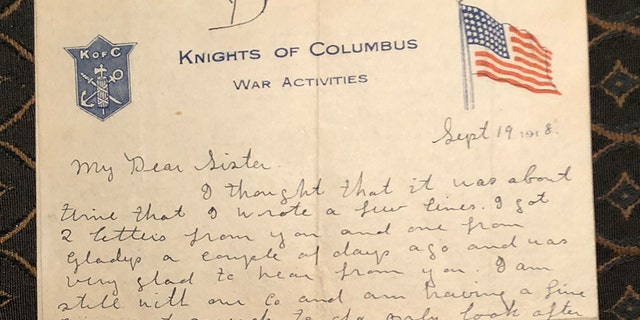 D
K OF C
KNIGHTS OF COLUMBUS
WAR ACTIVITIES
Sept 19 1918.
My Dear Sister.
I thought that it was about
time that I wrote a few lines. I got
2 letters from you and one from
Gladys a couple of days ago and was
very glad to hear from you. I am
still with our Co and am having a fine
to do only look after